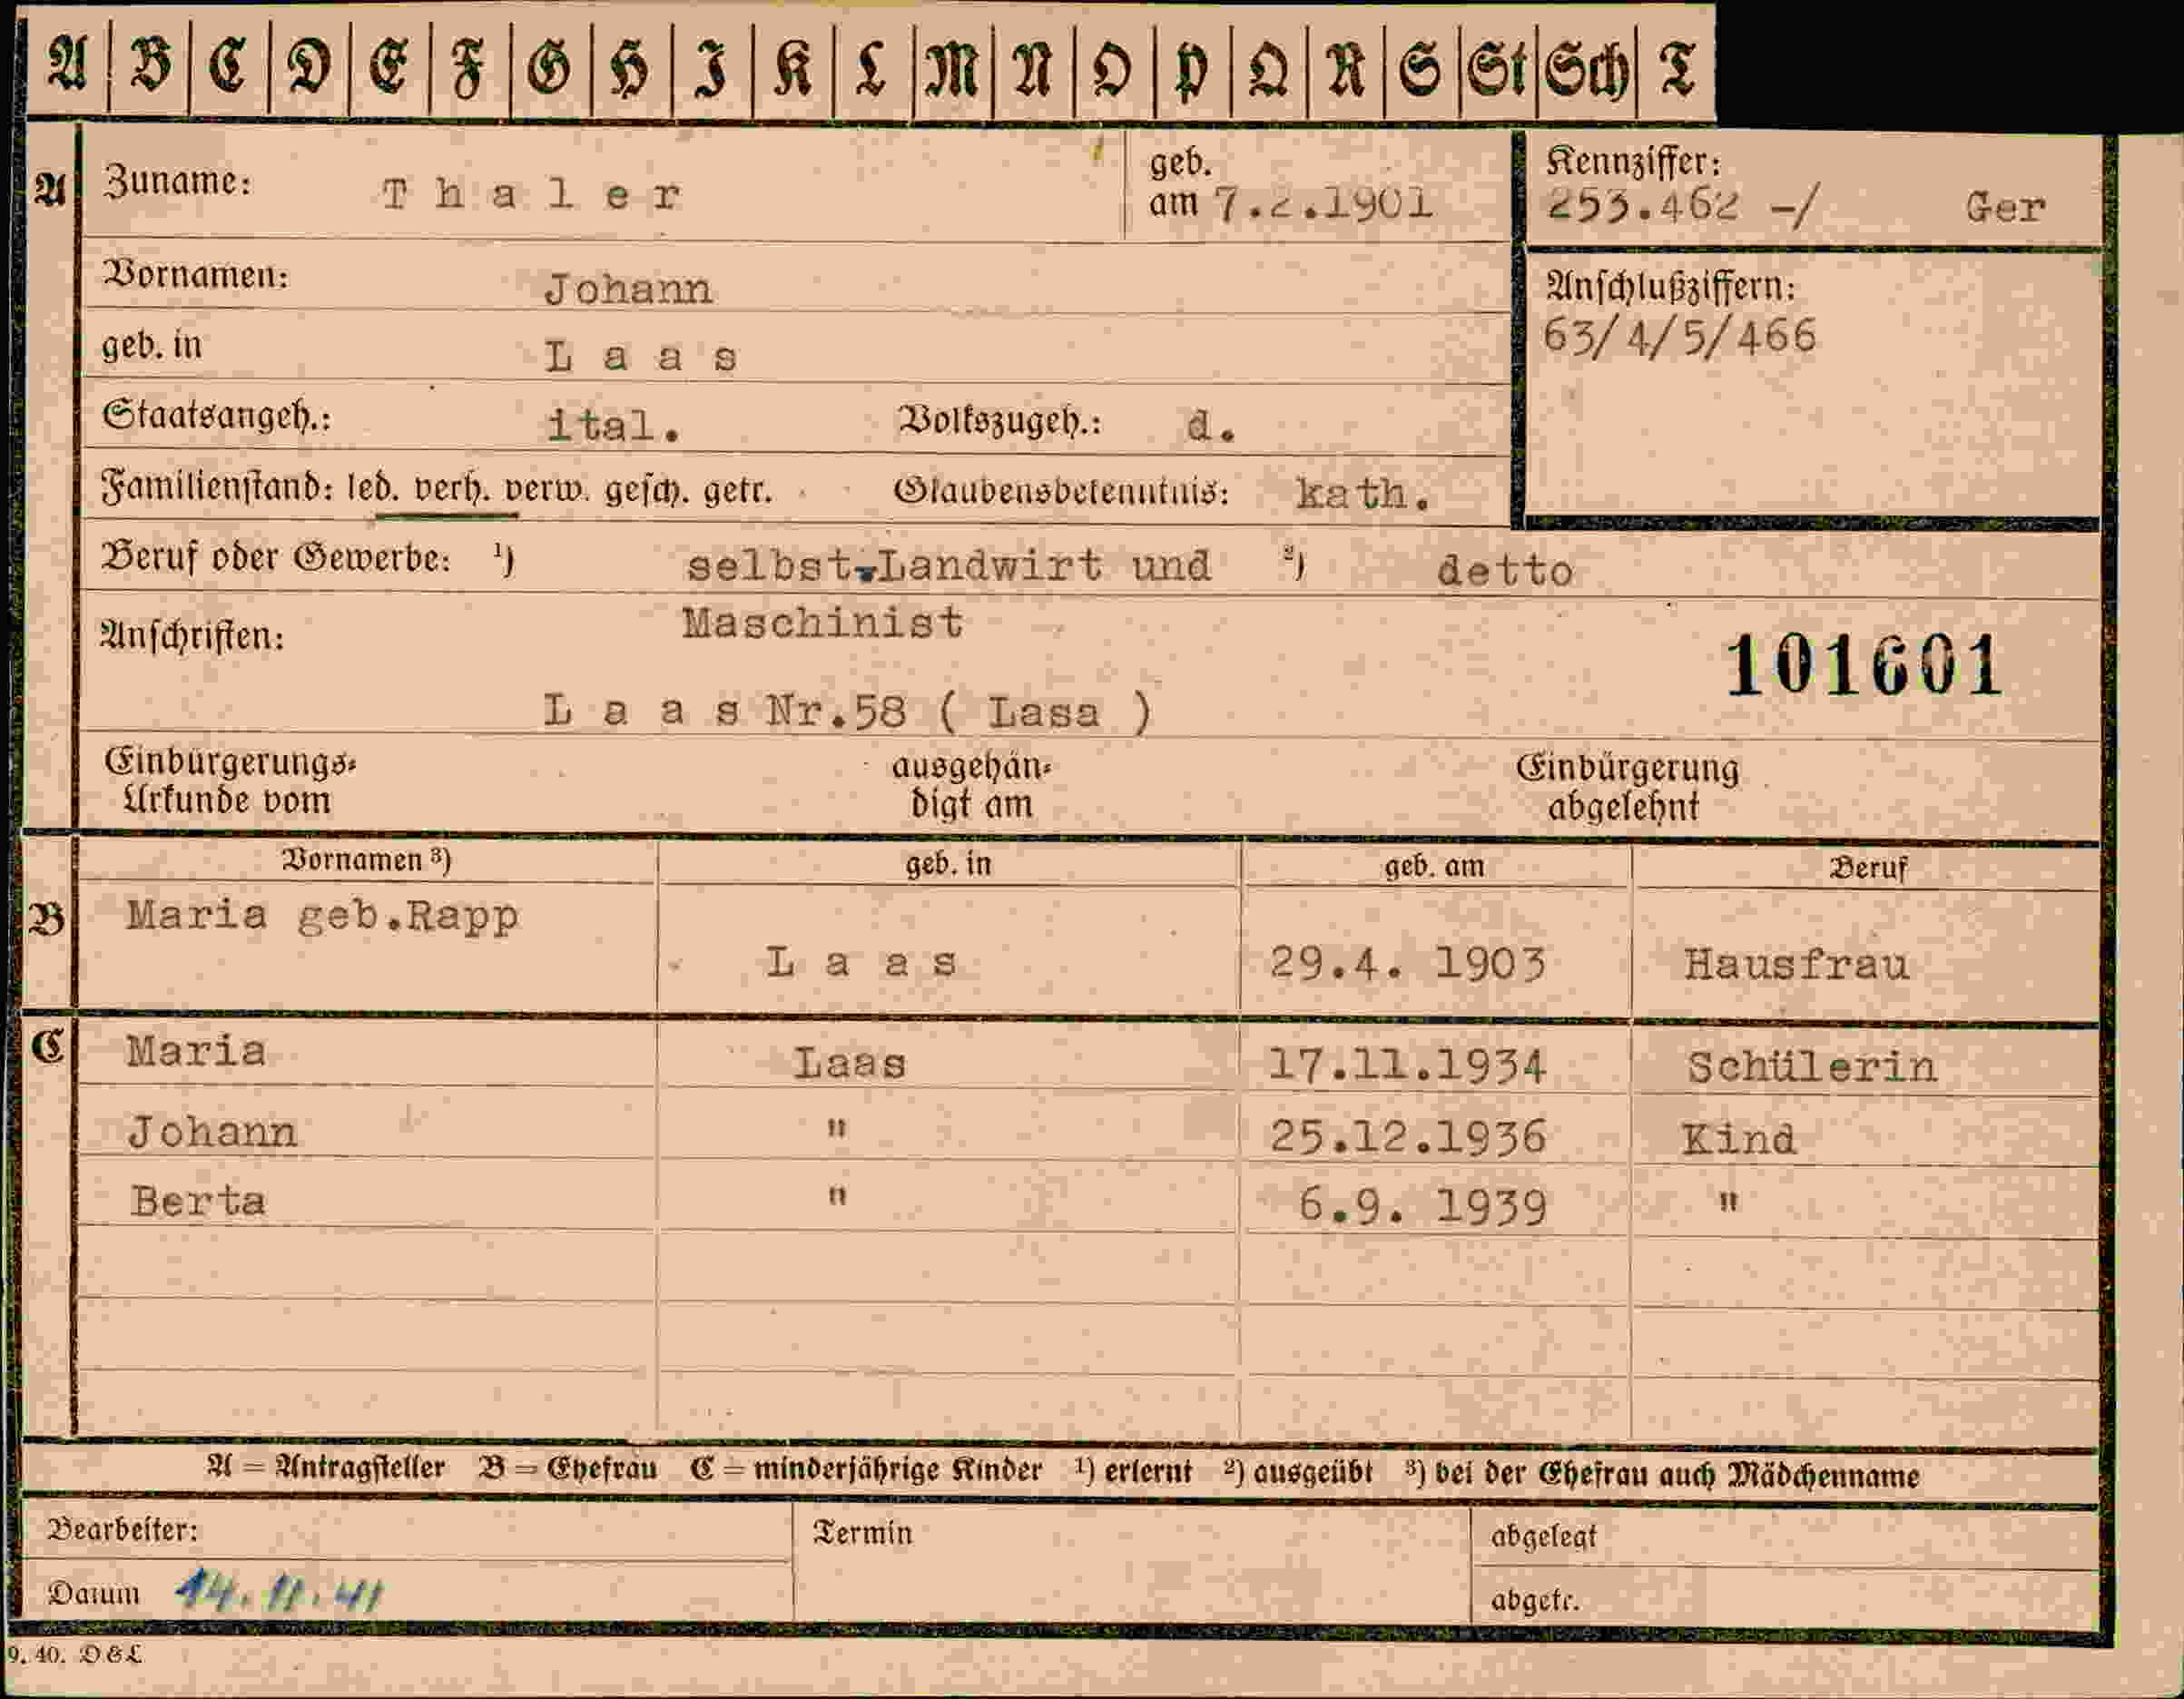 A B C D E F G H I K L M N O P Q R S St Sch T
A Zuname: Thaler geb. am 7.2.1901 Kennziffer: 253.462 -/ Ger
Vornamen: Johann Anschlußziffern:
geb. in Laas 63/4/5/466
Staatsangeh.: ital. Volkszugeh.: d.
Familienstand: led. verh. verw. gesch. getr. Glaubensbekenntnis: kath.
Beruf oder Gewerbe: ¹) selbst.Landwirt und ²) detto
Maschinist
Anschriften: 101601
Laas Nr.58 ( Lasa )
Einbürgerungs- ausgehän- Einbürgerung
Urkunde vom digt am abgelehnt
Vornamen ³) geb. in geb. am Beruf
B Maria geb.Rapp
Laas 29.4. 1903 Hausfrau
C Maria Laas 17.11.1934 Schülerin
Johann " 25.12.1936 Kind
Berta " 6.9. 1939 "
A = Antragsteller B = Ehefrau C = minderjährige Kinder ¹) erlernt ²) ausgeübt ³) bei der Ehefrau auch Mädchenname
Bearbeiter: Termin abgelegt
Datum 14.11.41 abgetr.
9. 40. D&L